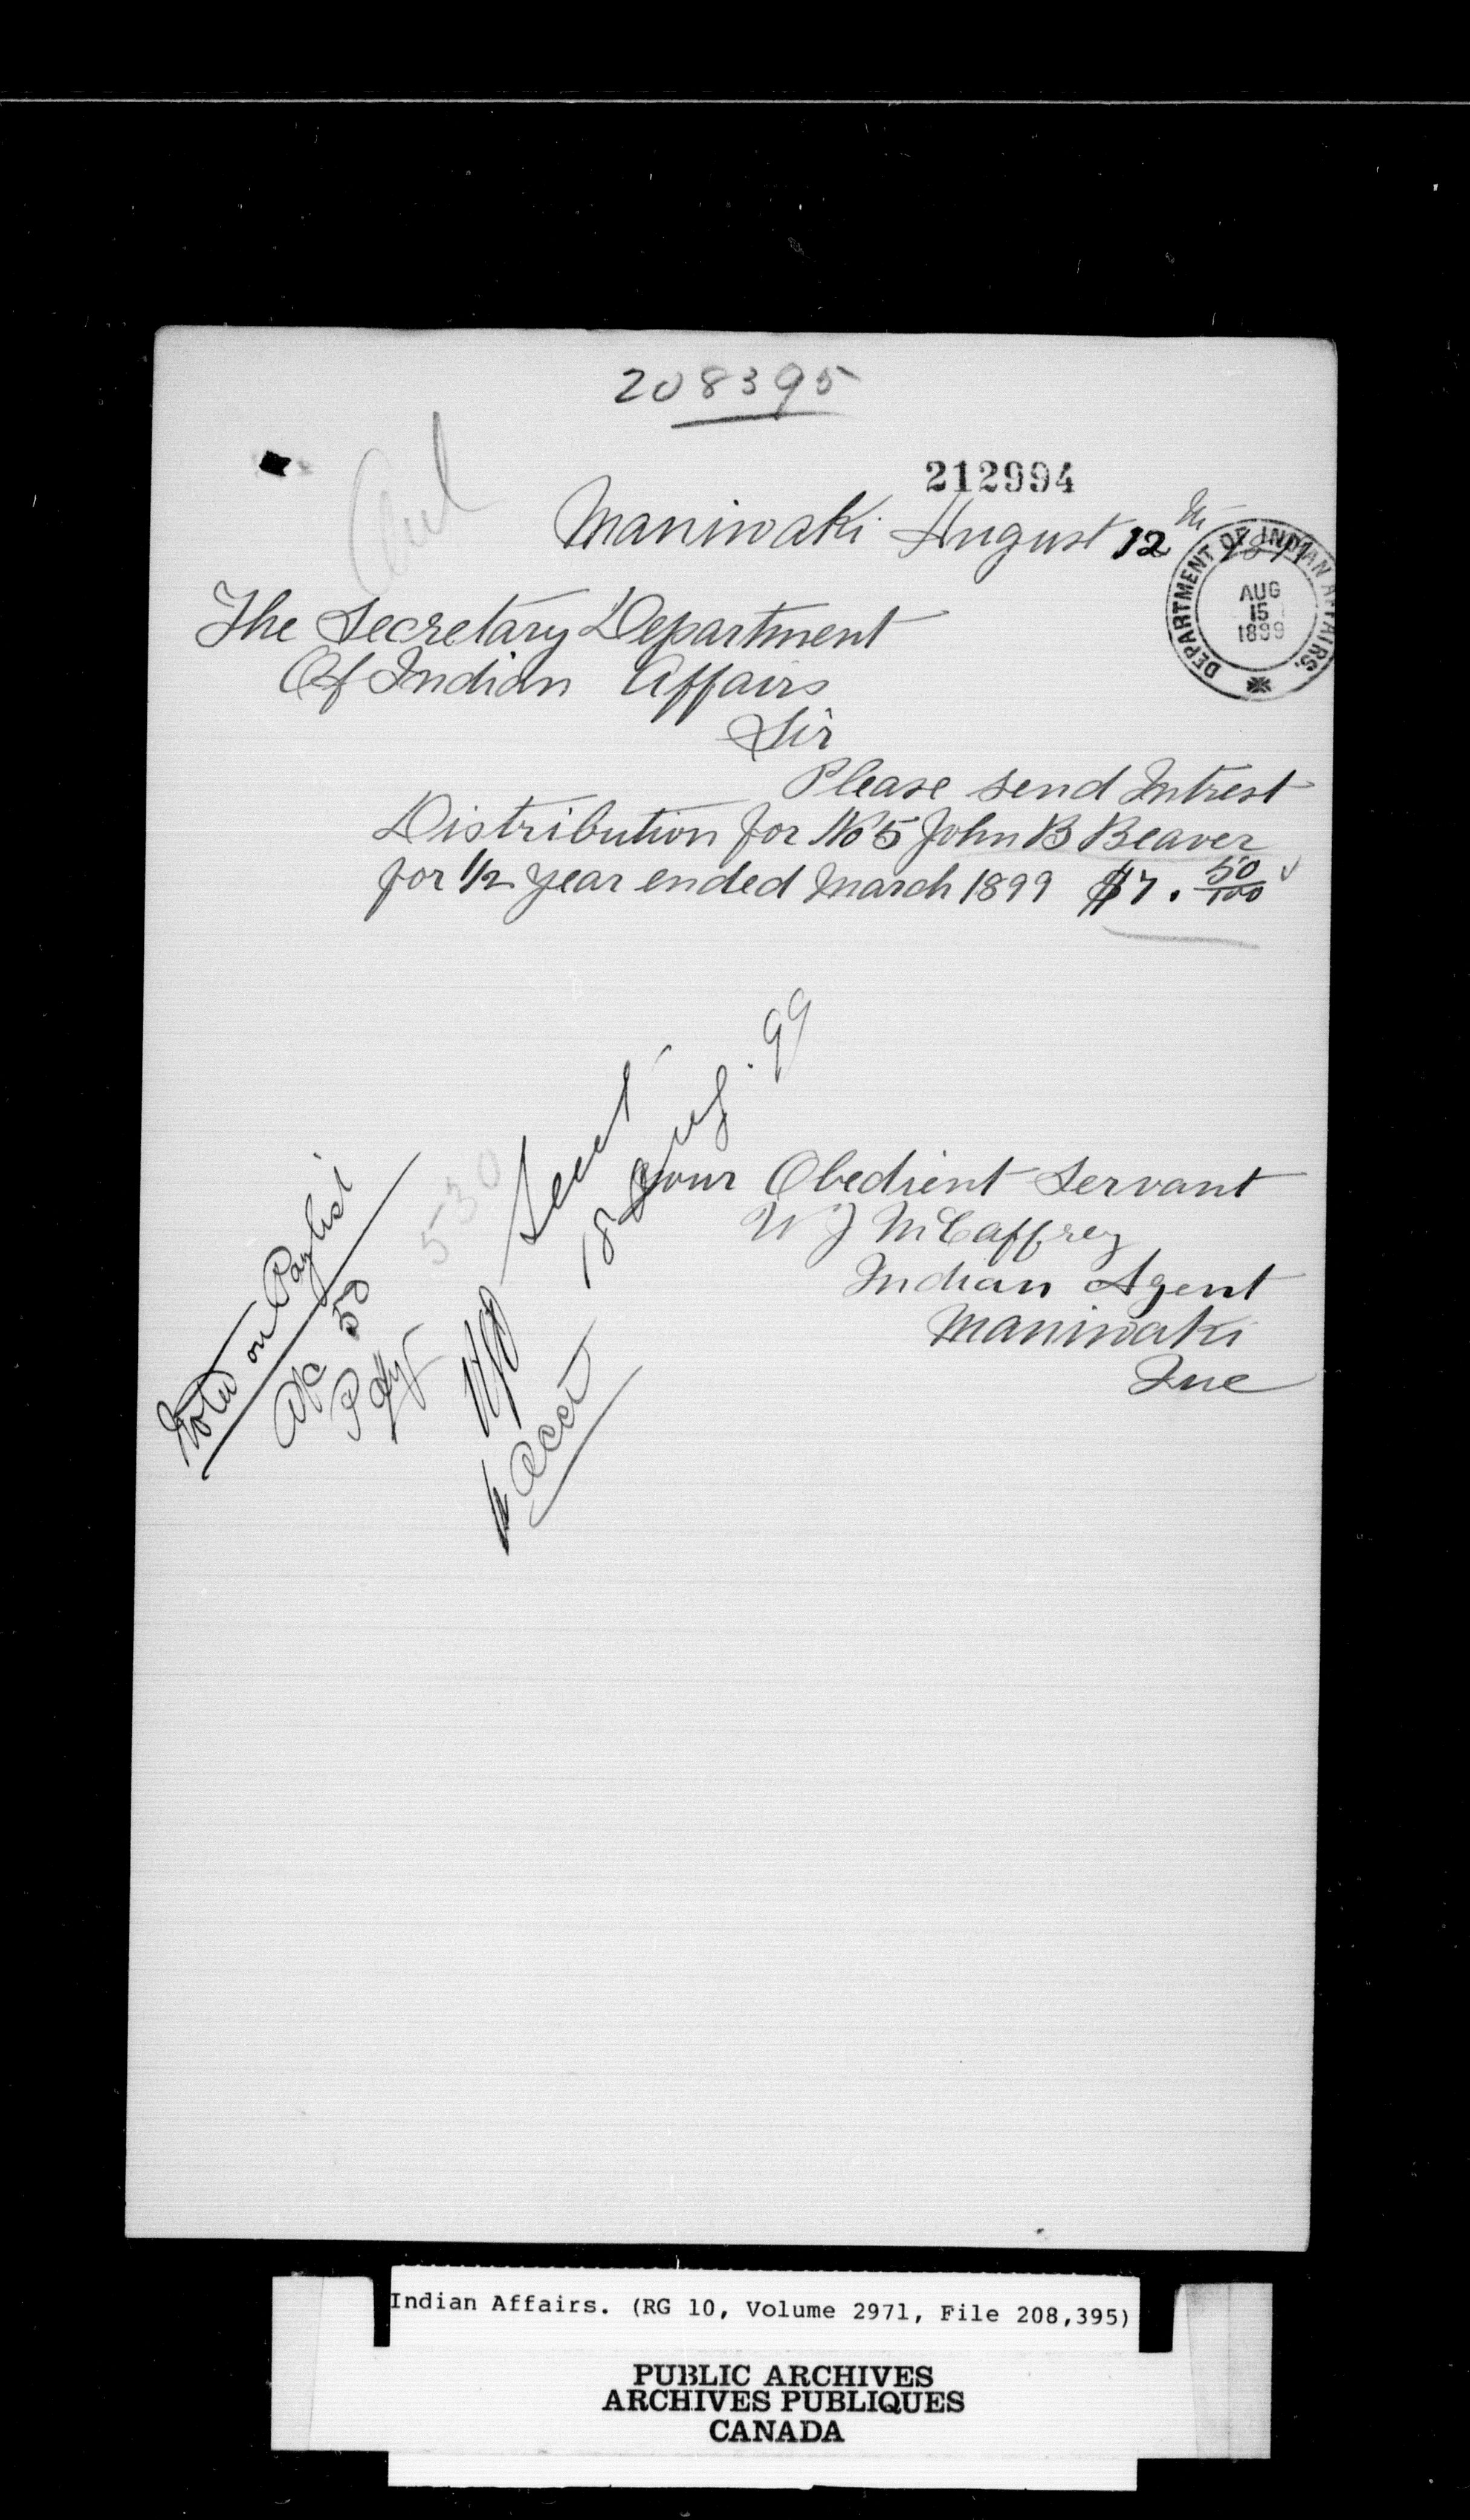 208395
212994
Maniwaki August 12th 1899
DEPARTMENT OF INDIAN AFFAIRS.
AUG
15
1899
The Secretary Department
Of Indian Affairs
Sir
Please send Intrest
Distribution for No 5 John B Beaver
for 1/2 year ended March 1899 $7. 50/100
Sent
18 Aug. 99
530
Your Obedient Servant
W J McCaffrey
Indian Agent
Maniwaki
Que
Noted on Paylist
50
Acct
Indian Affairs. (RG 10, Volume 2971, File 208,395)
PUBLIC ARCHIVES
ARCHIVES PUBLIQUES
CANADA